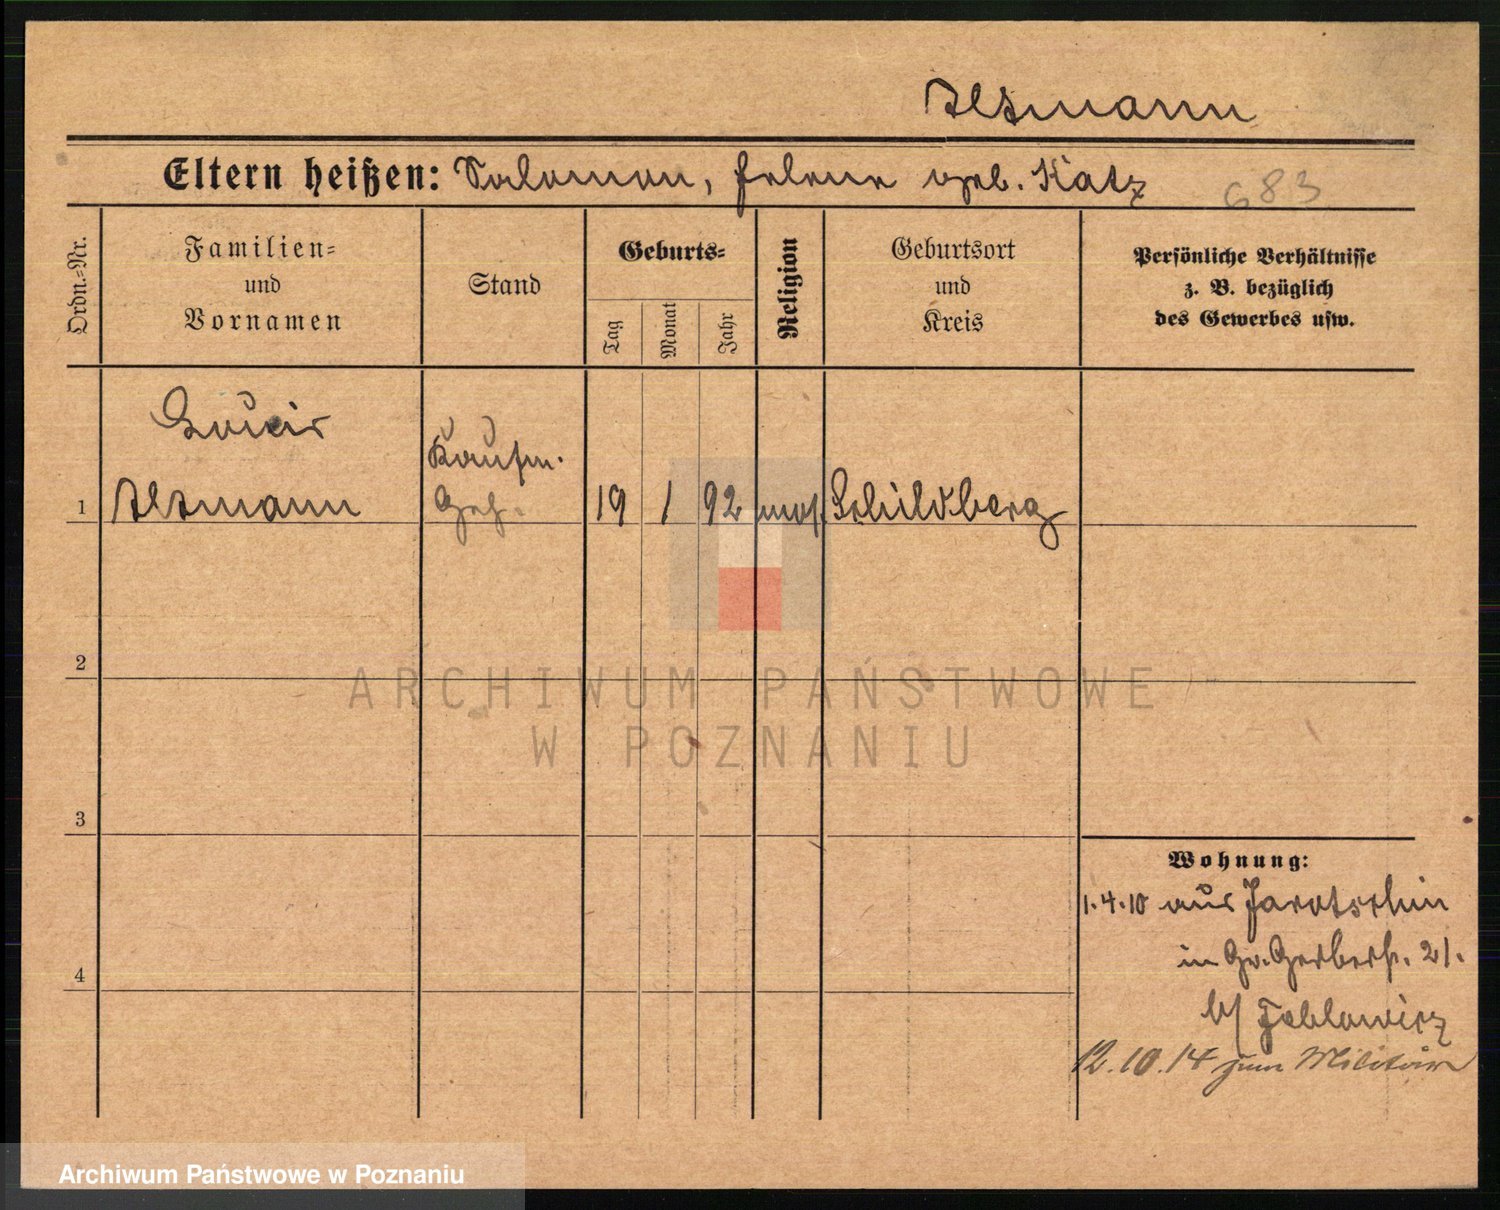 Altmann
Eltern heißen: Salomon, Helene geb. Katz
683
Ordn.=Nr.
Familien=
und
Vornamen
Stand
Geburts=
Tag
Monat
Jahr
Religion
Geburtsort
und
Kreis
Persönliche Verhältnisse
z. B. bezüglich
des Gewerbes usw.
Louis
Kaufm.
1 Altmann Geh. 19 1 92 mos. Schildberg
2
ARCHIWUM PAŃSTWOWE
W POZNANIU
3
Wohnung:
1.4.10 aus Jarotschin
4
in Gr. Gerberstr. 21.
b/
12.10.14 zum Militär
Archiwum Państwowe w Poznaniu